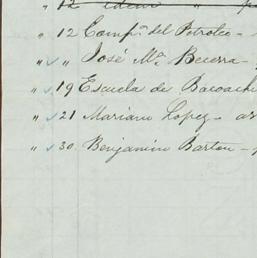 " 12 idem " p
" 12 Comp.ª del Petroleo -
" " José M.ª Becerra -
" 19 Escuela de Bacoachi
" 21 Mariano Lopez - a
" 30 Benjamin Barton -